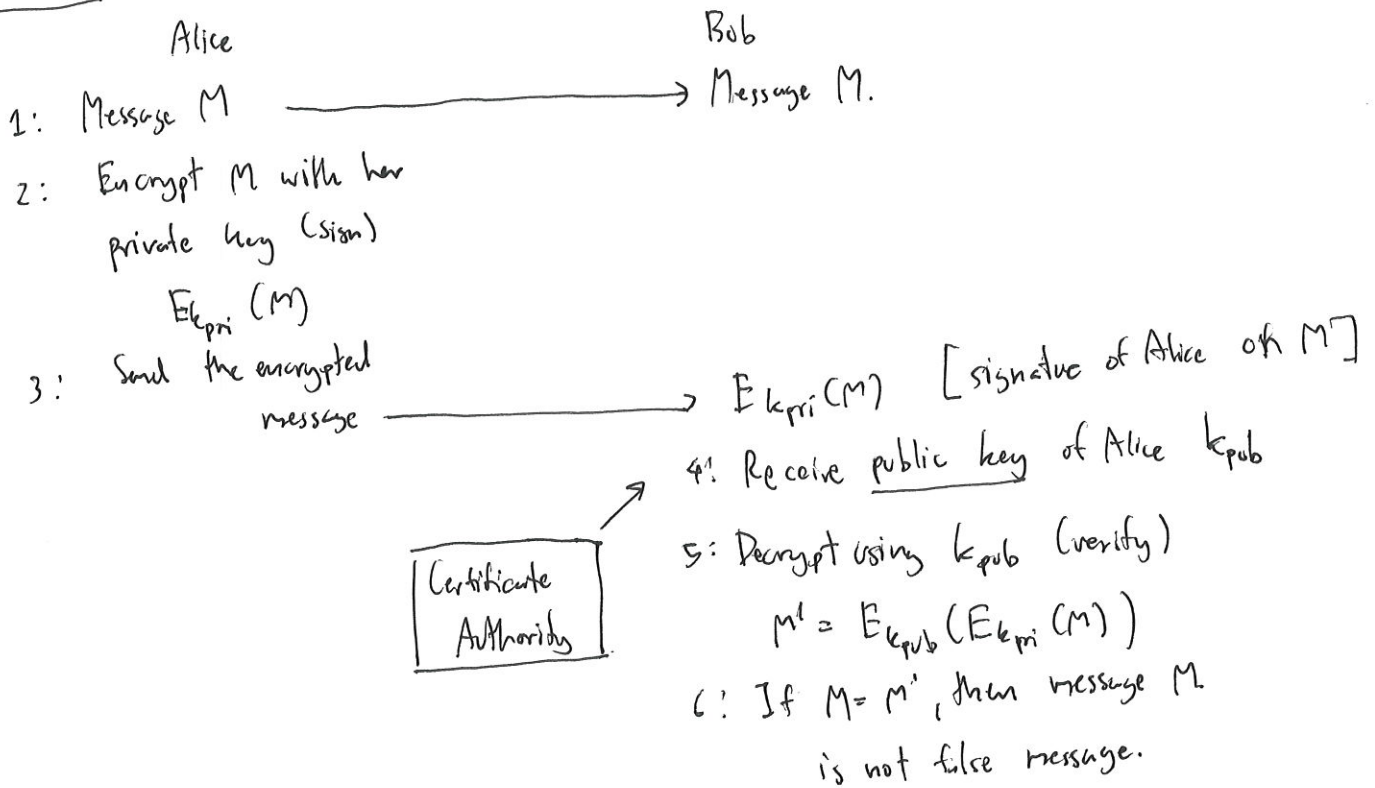 Alice
Bob
1: Message M
Message M.
2: Encrypt M with her
private key (sign)
E_{k_{pri}} (M)
3: Send the encrypted
message
E_{k_{pri}}(M) [signature of Alice on M]
4: Receive public key of Alice k_{pub}
Certificate
Authority
5: Decrypt using k_{pub} (verify)
M' = E_{k_{pub}}(E_{k_{pri}}(M))
6: If M = M', then message M
is not false message.